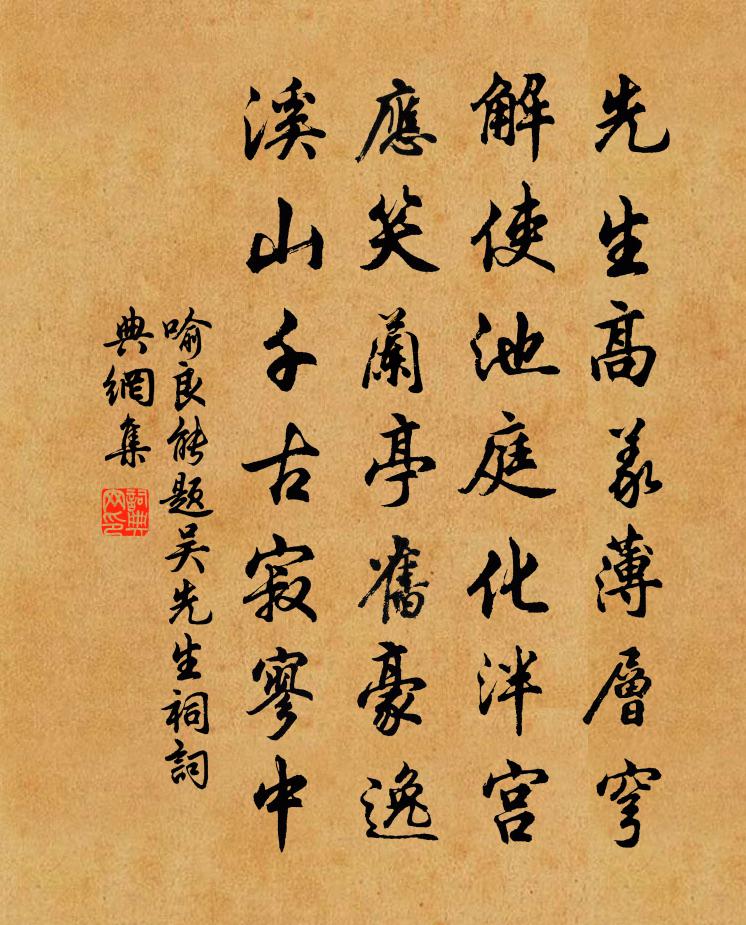 先生高義薄層穹
解使池庭化泮宮
應笑蘭亭舊豪逸
溪山千古寂寥中
喻良能題吳先生祠詞
典網集
詞典網印